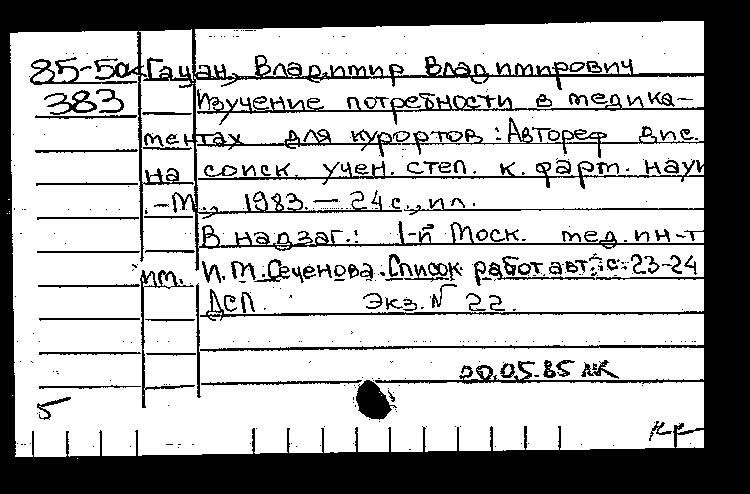 85-5дк Гацан, Владимир Владимирович
383 Изучение потребности в медика-
ментах для курортов: Автореф дис.
на соиск. учен. степ. к. фарм. наук
.-М., 1983. - 24 с., ил.
В надзаг.: I-й Моск. мед. ин-т
им. И.М. Сеченова. Список работ авт.: с. 23-24
ДСП. Экз. № 22.
00.05.85
5